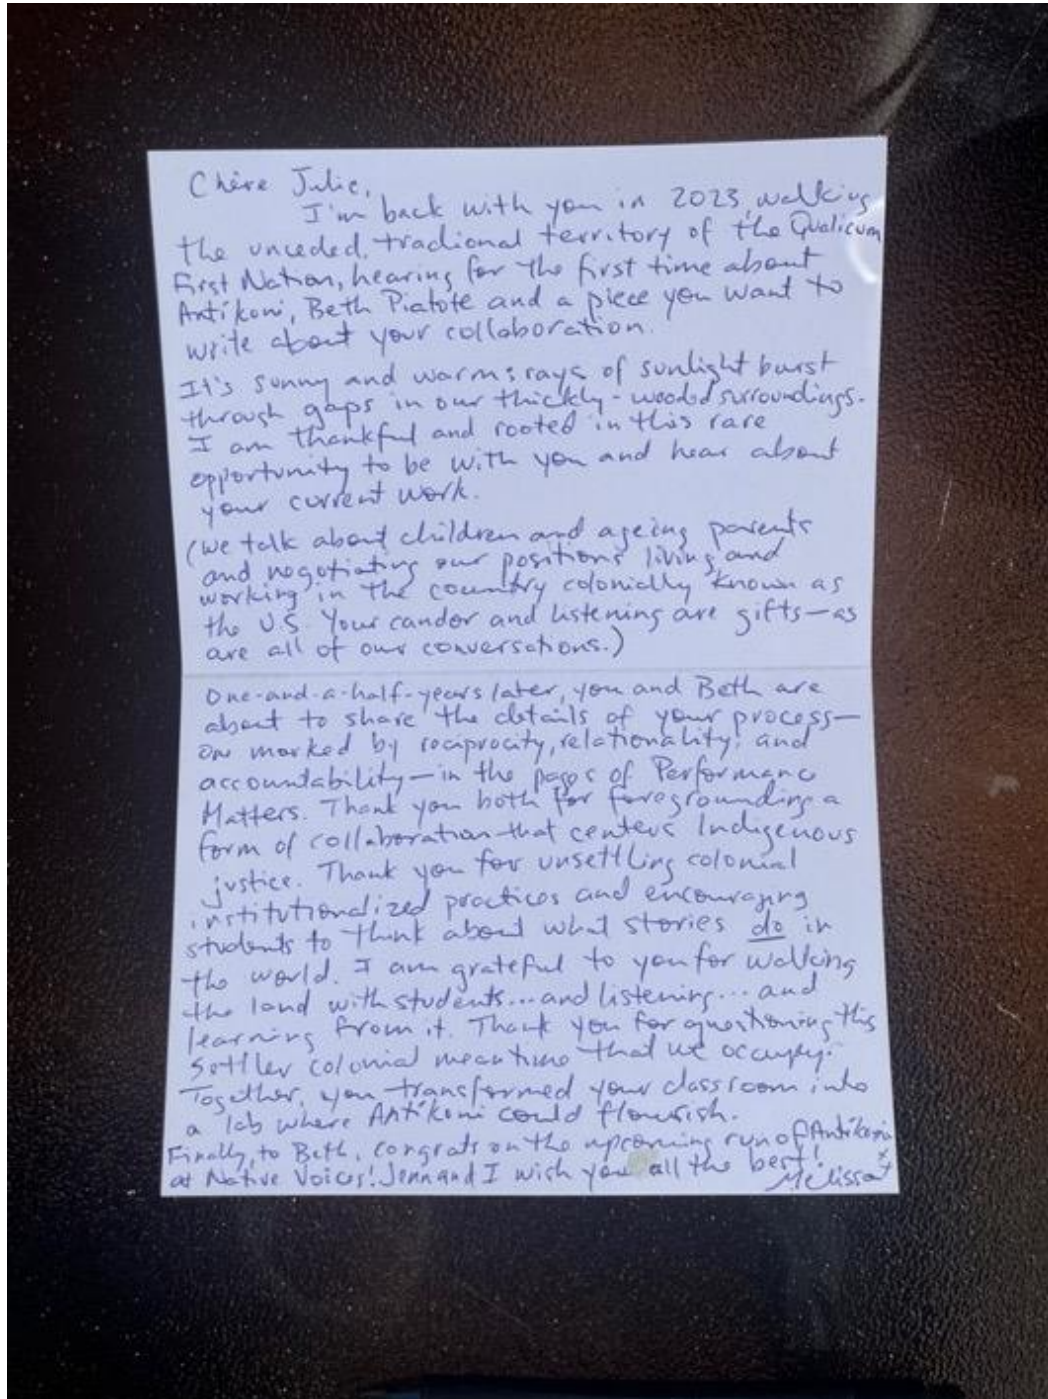 Chère Julie,
I'm back with you in 2023, walking
the unceded, tradional territory of the Qualicum
First Nation, hearing for the first time about
Antíkoni, Beth Piatote and a piece you want to
write about your collaboration.
It's sunny and warm: rays of sunlight burst
through gaps in our thickly-wooded surroundings.
I am thankful and rooted in this rare
opportunity to be with you and hear about
your current work.
(We talk about children and ageing parents
and negotiating our positions living and
working in the country colonially known as
the U.S. Your candor and listening are gifts—as
are all of our conversations.)
One-and-a-half-years later, you and Beth are
about to share the details of your process—
one marked by reciprocity, relationality, and
accountability—in the pages of Performance
Matters. Thank you both for foregrounding a
form of collaboration that centers Indigenous
justice. Thank you for unsettling colonial
institutionalized practices and encouraging
students to think about what stories do in
the world. I am grateful to you for walking
the land with students...and listening...and
learning from it. Thank you for questioning this
settler colonial meantime that we occupy.
Together, you transformed your classroom into
a lab where Antíkoni could flourish.
Finally, to Beth, congrats on the upcoming run of Antíkoni
at Native Voices! Jenn and I wish you all the best!
Mélissa